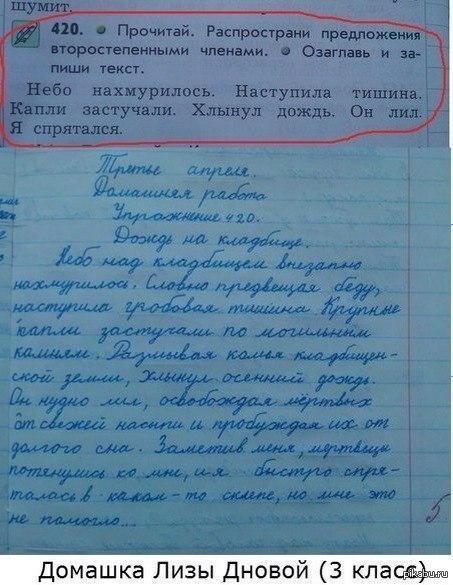 шумит.
420. • Прочитай. Распространи предложения
второстепенными членами. • Озаглавь и за-
пиши текст.
Небо нахмурилось. Наступила тишина.
Капли застучали. Хлынул дождь. Он лил.
Я спрятался.
Третье апреля.
Домашняя работа
Упражнение 420.
Дождь на кладбище.
Небо над кладбищем внезапно
нахмурилось. Словно предвещая беду,
наступила гробовая тишина. Крупные
капли застучали по могильным
камням. Размывая комья кладбищен-
ской земли, хлынул осенний дождь.
Он нудно лил, освобождая мёртвых
от свежей насыпи и пробуждая их от
долгого сна. Заметив меня, мертвецы
потянулись ко мне, и я быстро спря-
талась в каком-то склепе, но мне это
не помогло...
5
Домашка Лизы Дновой (3 класс)
pikabu.ru